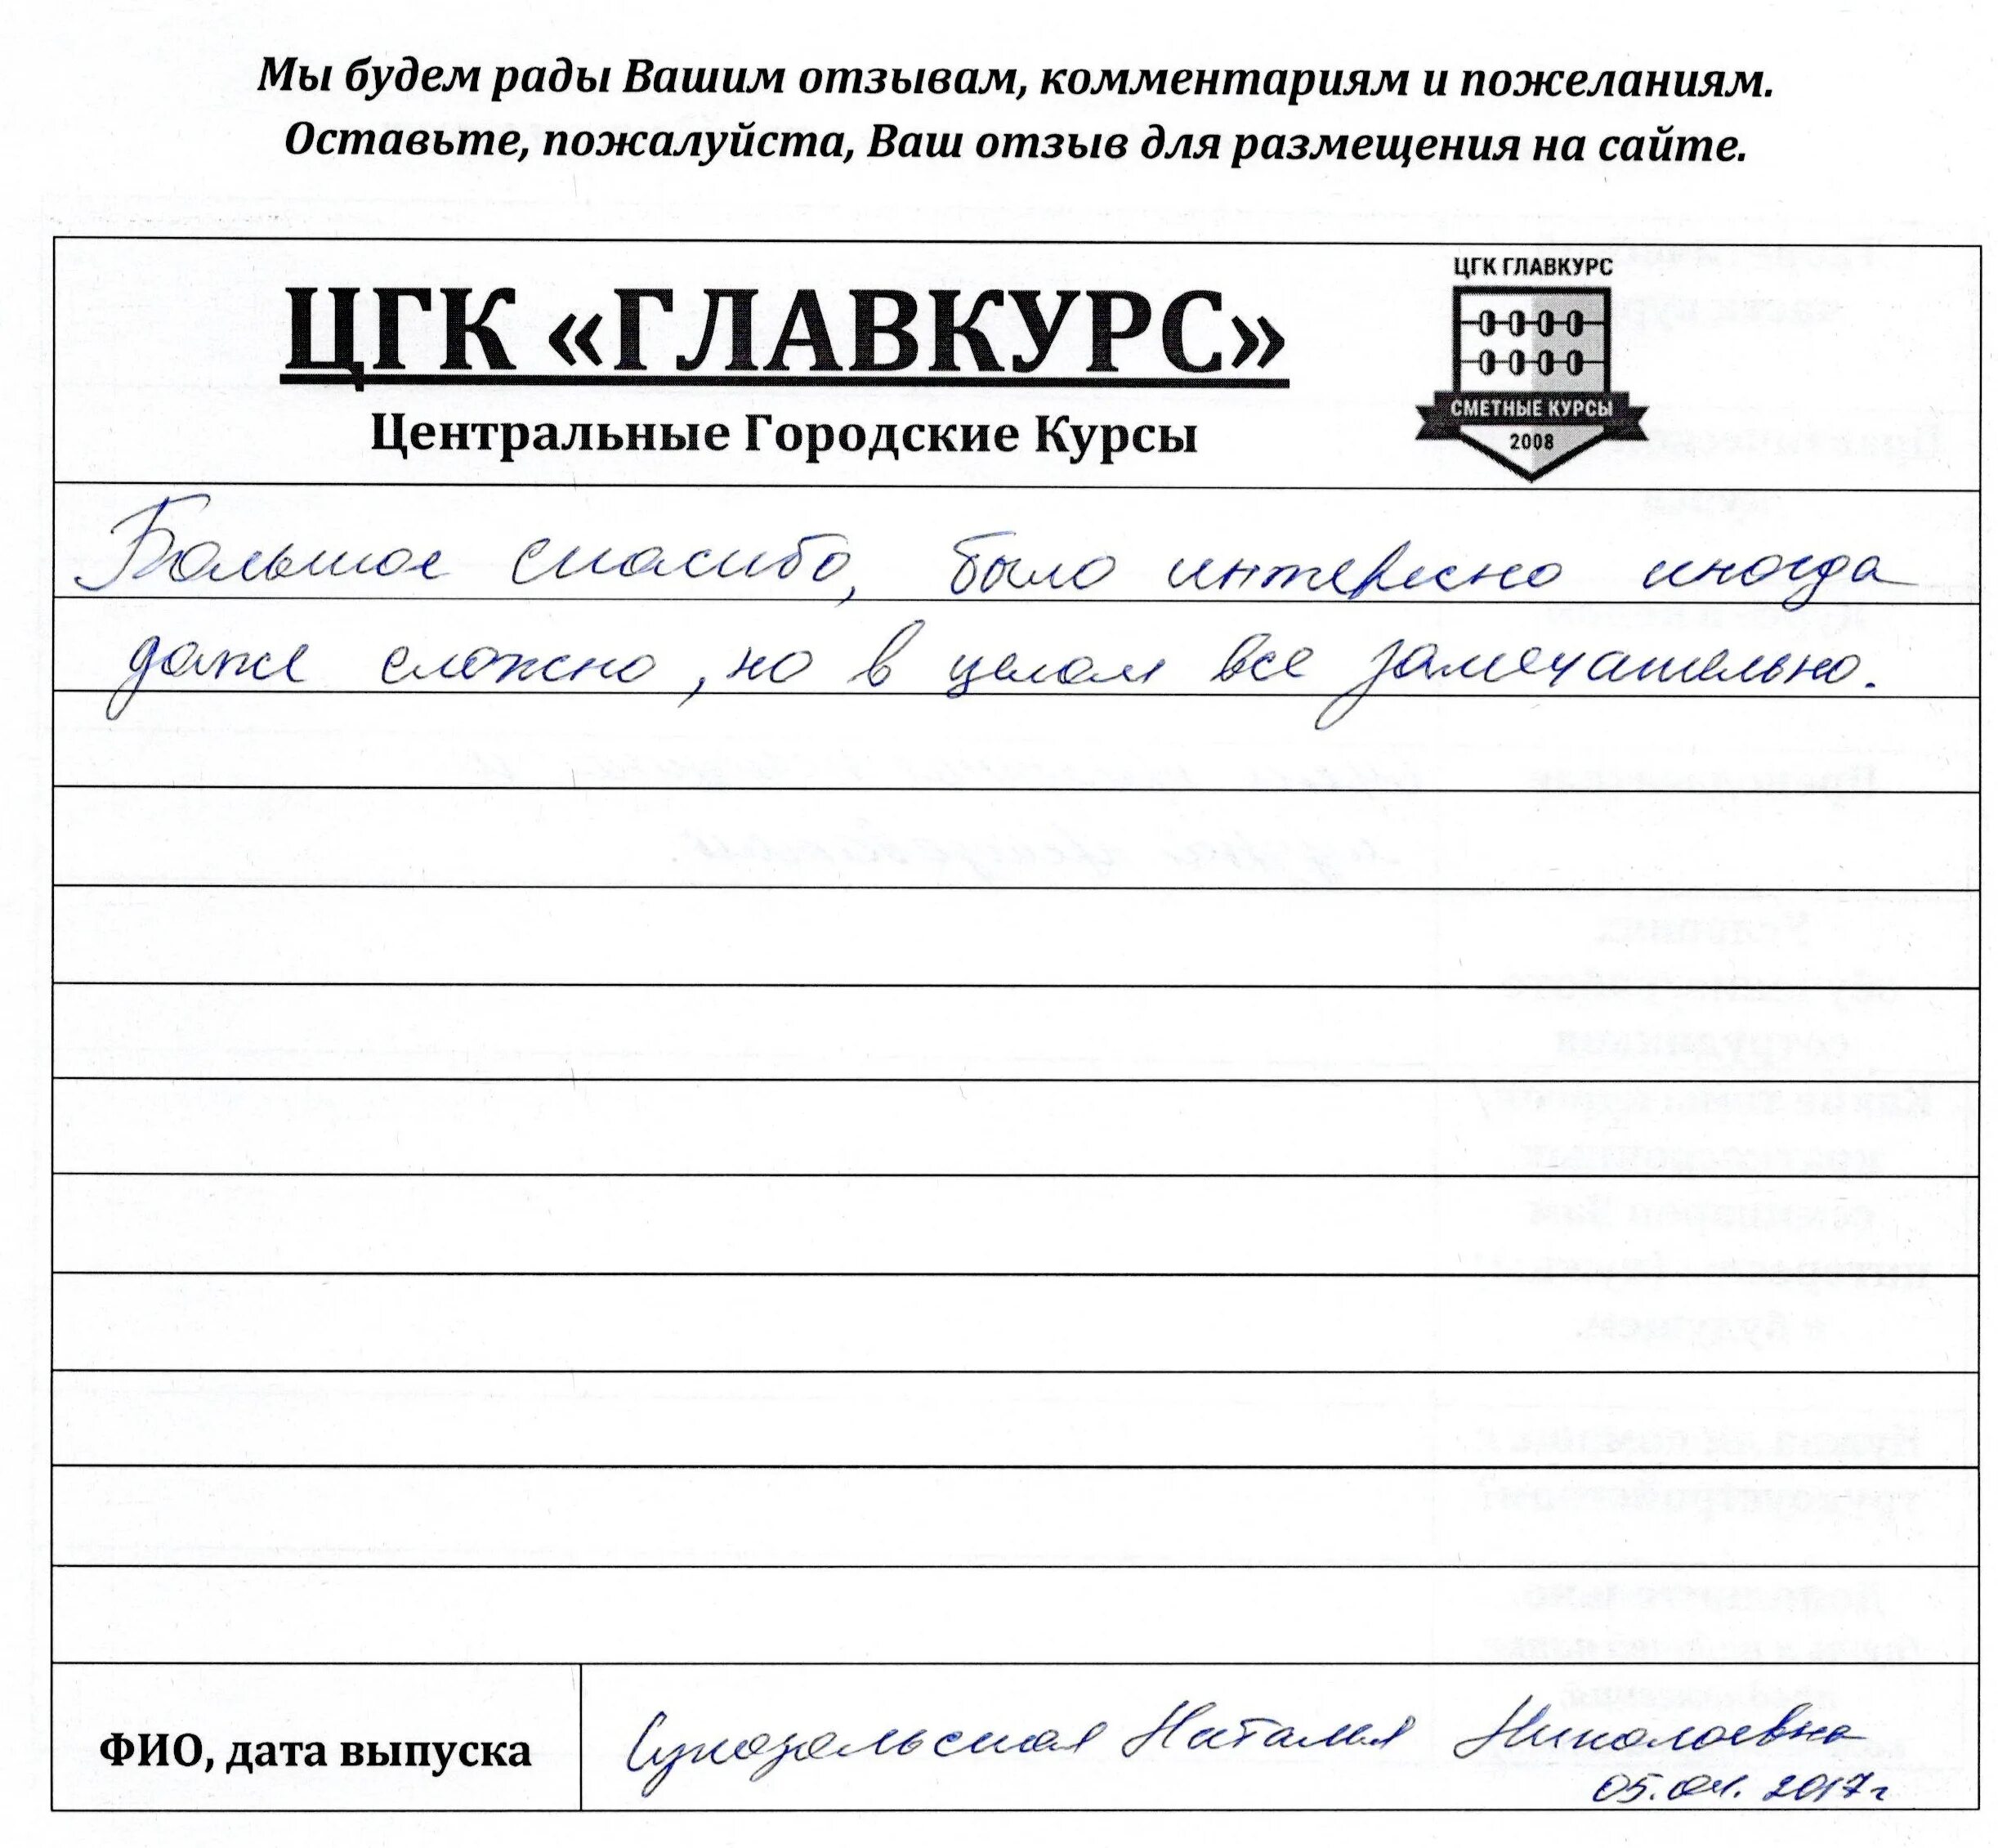 Мы будем рады Вашим отзывам, комментариям и пожеланиям.
Оставьте, пожалуйста, Ваш отзыв для размещения на сайте.
ЦГК «ГЛАВКУРС»
Центральные Городские Курсы
ЦГК ГЛАВКУРС
СМЕТНЫЕ КУРСЫ
2008
Большое спасибо, было интересно иногда
даже сложно, но в целом все замечательно.
ФИО, дата выпуска
Наталия Николаевна
05.04.2017г